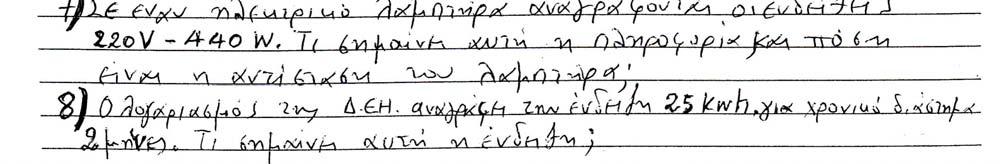 7) Σε έναν ηλεκτρικό λαμπτήρα αναγράφονται οι ενδείξεις
220V-440W. Τι σημαίνει αυτή η πληροφορία και πόση
είναι η αντίσταση του λαμπτήρα;
8) Ο λογαριασμός της Δ.ΕΗ. αναγράφει την ένδειξη 25 kwh, για χρονικό διάστημα
2 μήνες. Τι σημαίνει αυτή η ένδειξη;